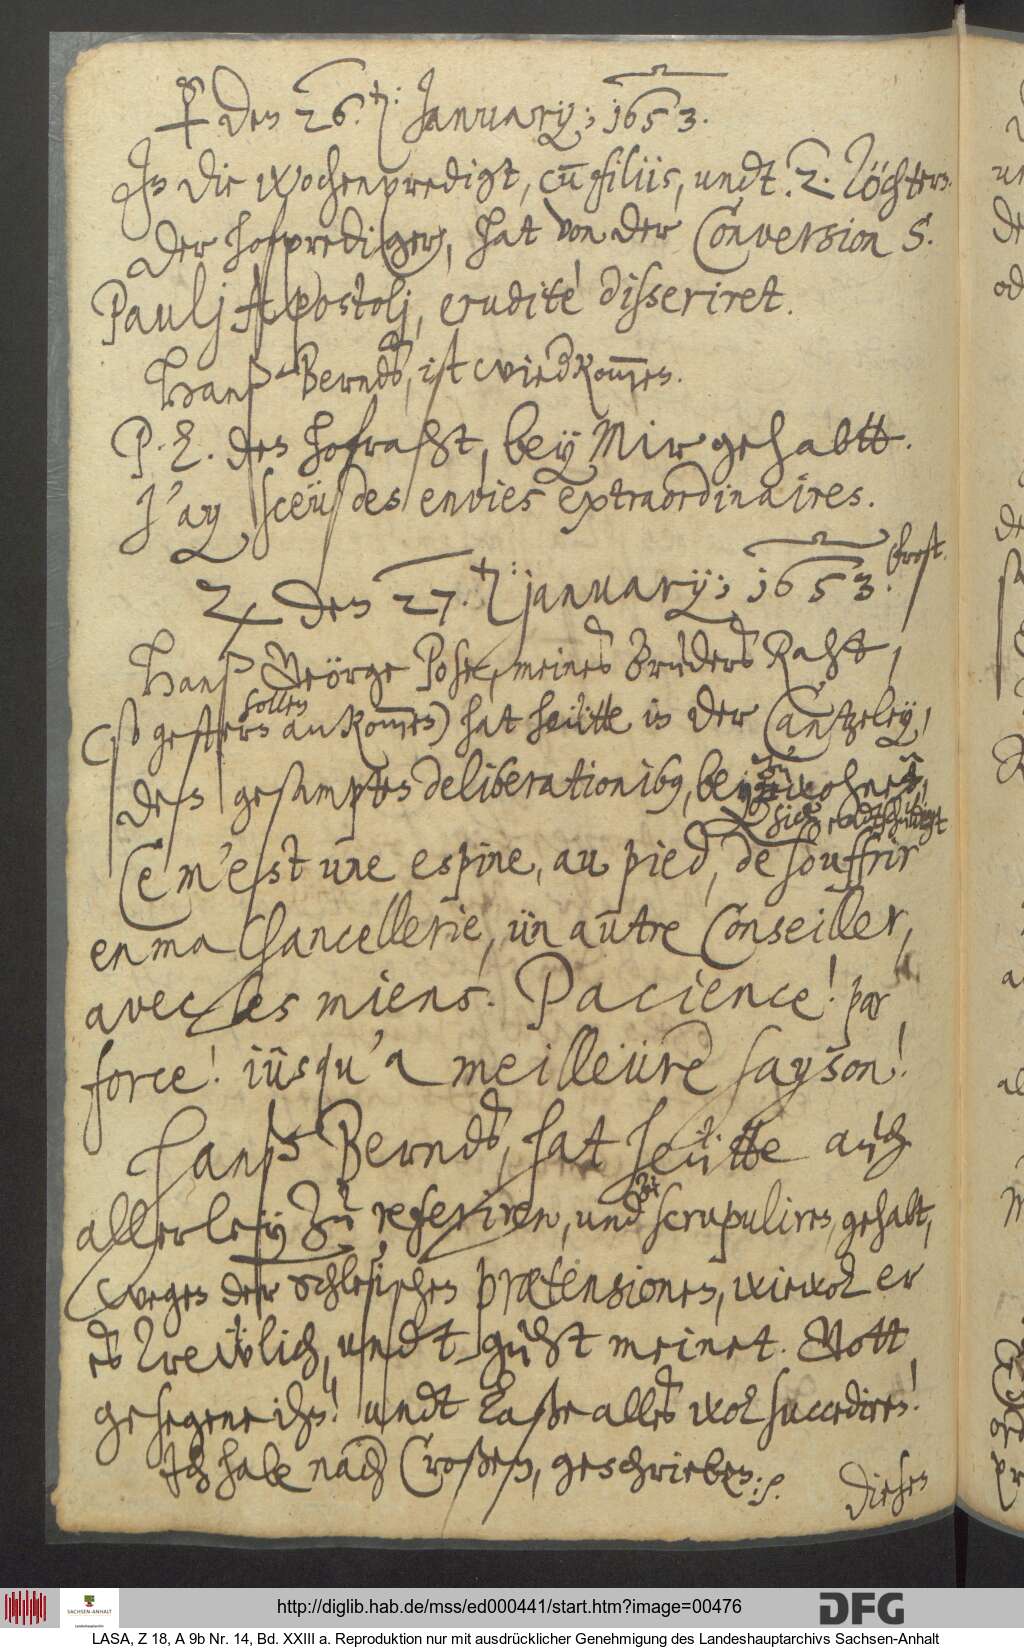 ☿ den 26.t: January; 1653.
In die wochenpredigt, cũ filiis, undt 2. Töchtern.
Der hofprediger, hat von der Conversion S.
Paulj Apostolj, eruditè disseriret.
Hanß Berndt, ist wiedkom̅en.
P. E. den hofraht, bey Mir gehabtt.
J'ay sceü des envies extraordinaires.
♃ den 27.t: january; 1653. frost.
Hanß Geörge Pose, meines bruders Raht,
sollen
(so gestern ankom̅en) hat heütte in der Cantzeley,
den gesampten deliberationibꝫ, bey zu wohnen,
sich endtschuldigt
Ce m'est üne espine, au pied, de souffrir
en ma Chancellerie, ün autre Conseiller,
avec les miens. Pacience! par
force! iüsqu'a meilleüre sayson!
Hanß Berndt, hat heütte auch
allerley zu referiren, undt scrupuliren, gehabt,
wegen der Schlesischen prætensionen, wiewol er
es trewlich, undt guht meinet. Gott
gesegene ihn! undt laße alles wol succediren!
Ich habe nach Croßen, geschrieben. ꝑ.
dieses
http://diglib.hab.de/mss/ed000441/start.htm?image=00476
SACHSEN-ANHALT
DFG
LASA, Z 18, A 9b Nr. 14, Bd. XXIII a. Reproduktion nur mit ausdrücklicher Genehmigung des Landeshauptarchivs Sachsen-Anhalt